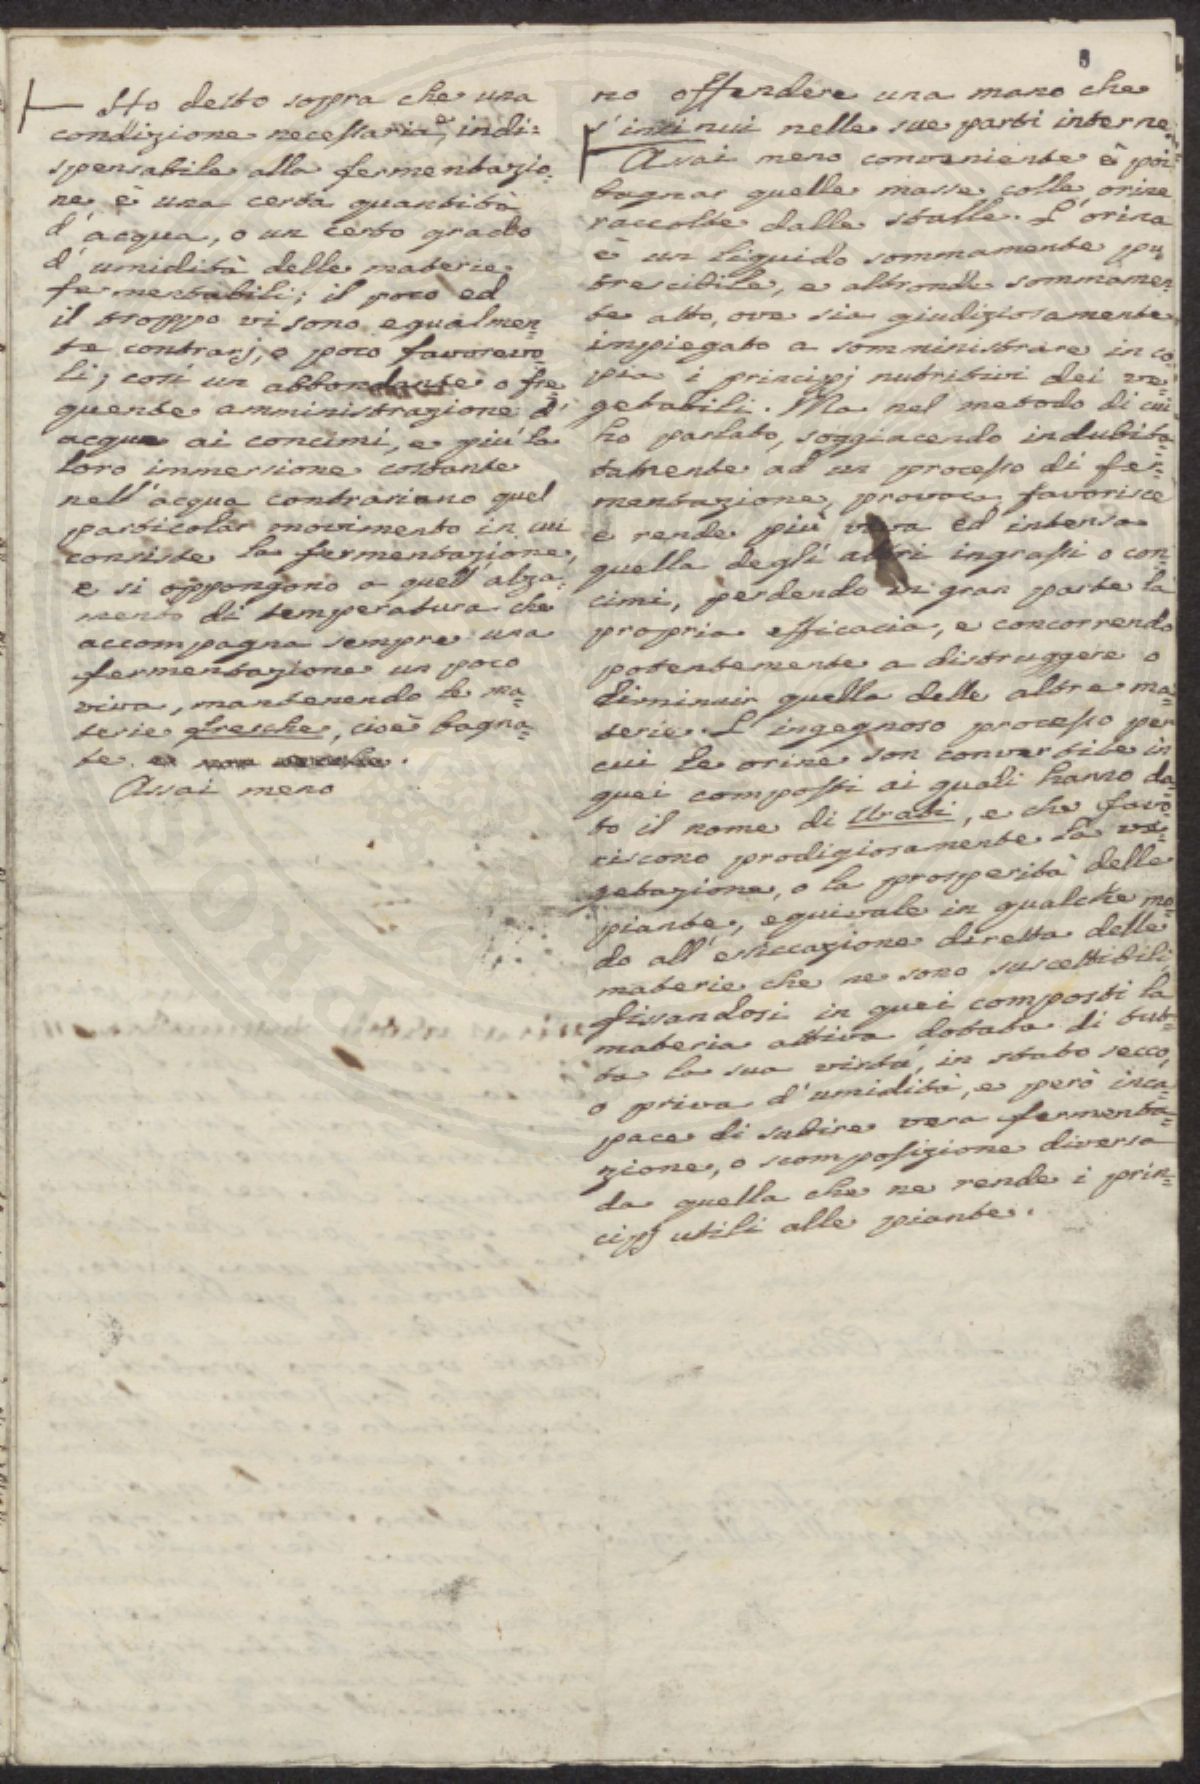 Ho detto sopra che una
condizione necessaria, e indi=
spensabile alla fermentazio=
ne è una certa quantità
d'acqua, o un certo grado
d'umidità delle materie
fermentabili; il poco ed
il troppo vi sono egualmen=
te contrarj, o poco favorevo=
li; così un abbondante o fre
quente amministrazione d'
acqua ai concimi, e più la
loro immersione costante
nell'acqua contrariano quel
particolar movimento in cui
consiste la fermentazione,
e si oppongono a quell'alza=
mento di temperatura che
accompagna sempre una
fermentazione un poco
viva, mantenendo le ma=
terie fresche, cioè bagna=
te.
Assai meno
8
no offendere una mano che
s'insinui nelle sue parti interne.
Assai meno conveniente è poi
bagnar quelle masse colle orine
raccolte dalle stalle. L'orina
è un liquido sommamente pu
trescibile, e altronde sommamen=
te atto, ove sia giudiziosamente
impiegato a somministrare in co=
pia i principj nutritivi dei ve=
getabili. Ma nel metodo di cui
ho parlato, soggiacendo indubita
tamente ad un processo di fer=
mentazione, provoca favorisce
e rende più viva ed intensa
quella degli altri ingrassi o con
cimi, perdendo in gran parte la
propria efficacia, e concorrendo
potentemente a distruggere o
diminuir quella delle altre ma=
terie. L'ingegnoso processo per
cui le orine son convertite in
quei composti ai quali hanno da=
to il nome di Urati, e che favo=
riscono prodigiosamente la ve=
getazione, o la prosperità delle
piante, equivale in qualche mo=
do all'essiccazione diretta delle
materie che ne sono suscettibili,
fissandosi in quei composti la
materia attiva dotata di tut=
ta la sua virtù, in stato secco,
o priva d'umidità, e però inca=
pace di subire vera fermenta=
zione, o scomposizione diversa
da quella che ne rende i prin=
cipj utili alle piante.